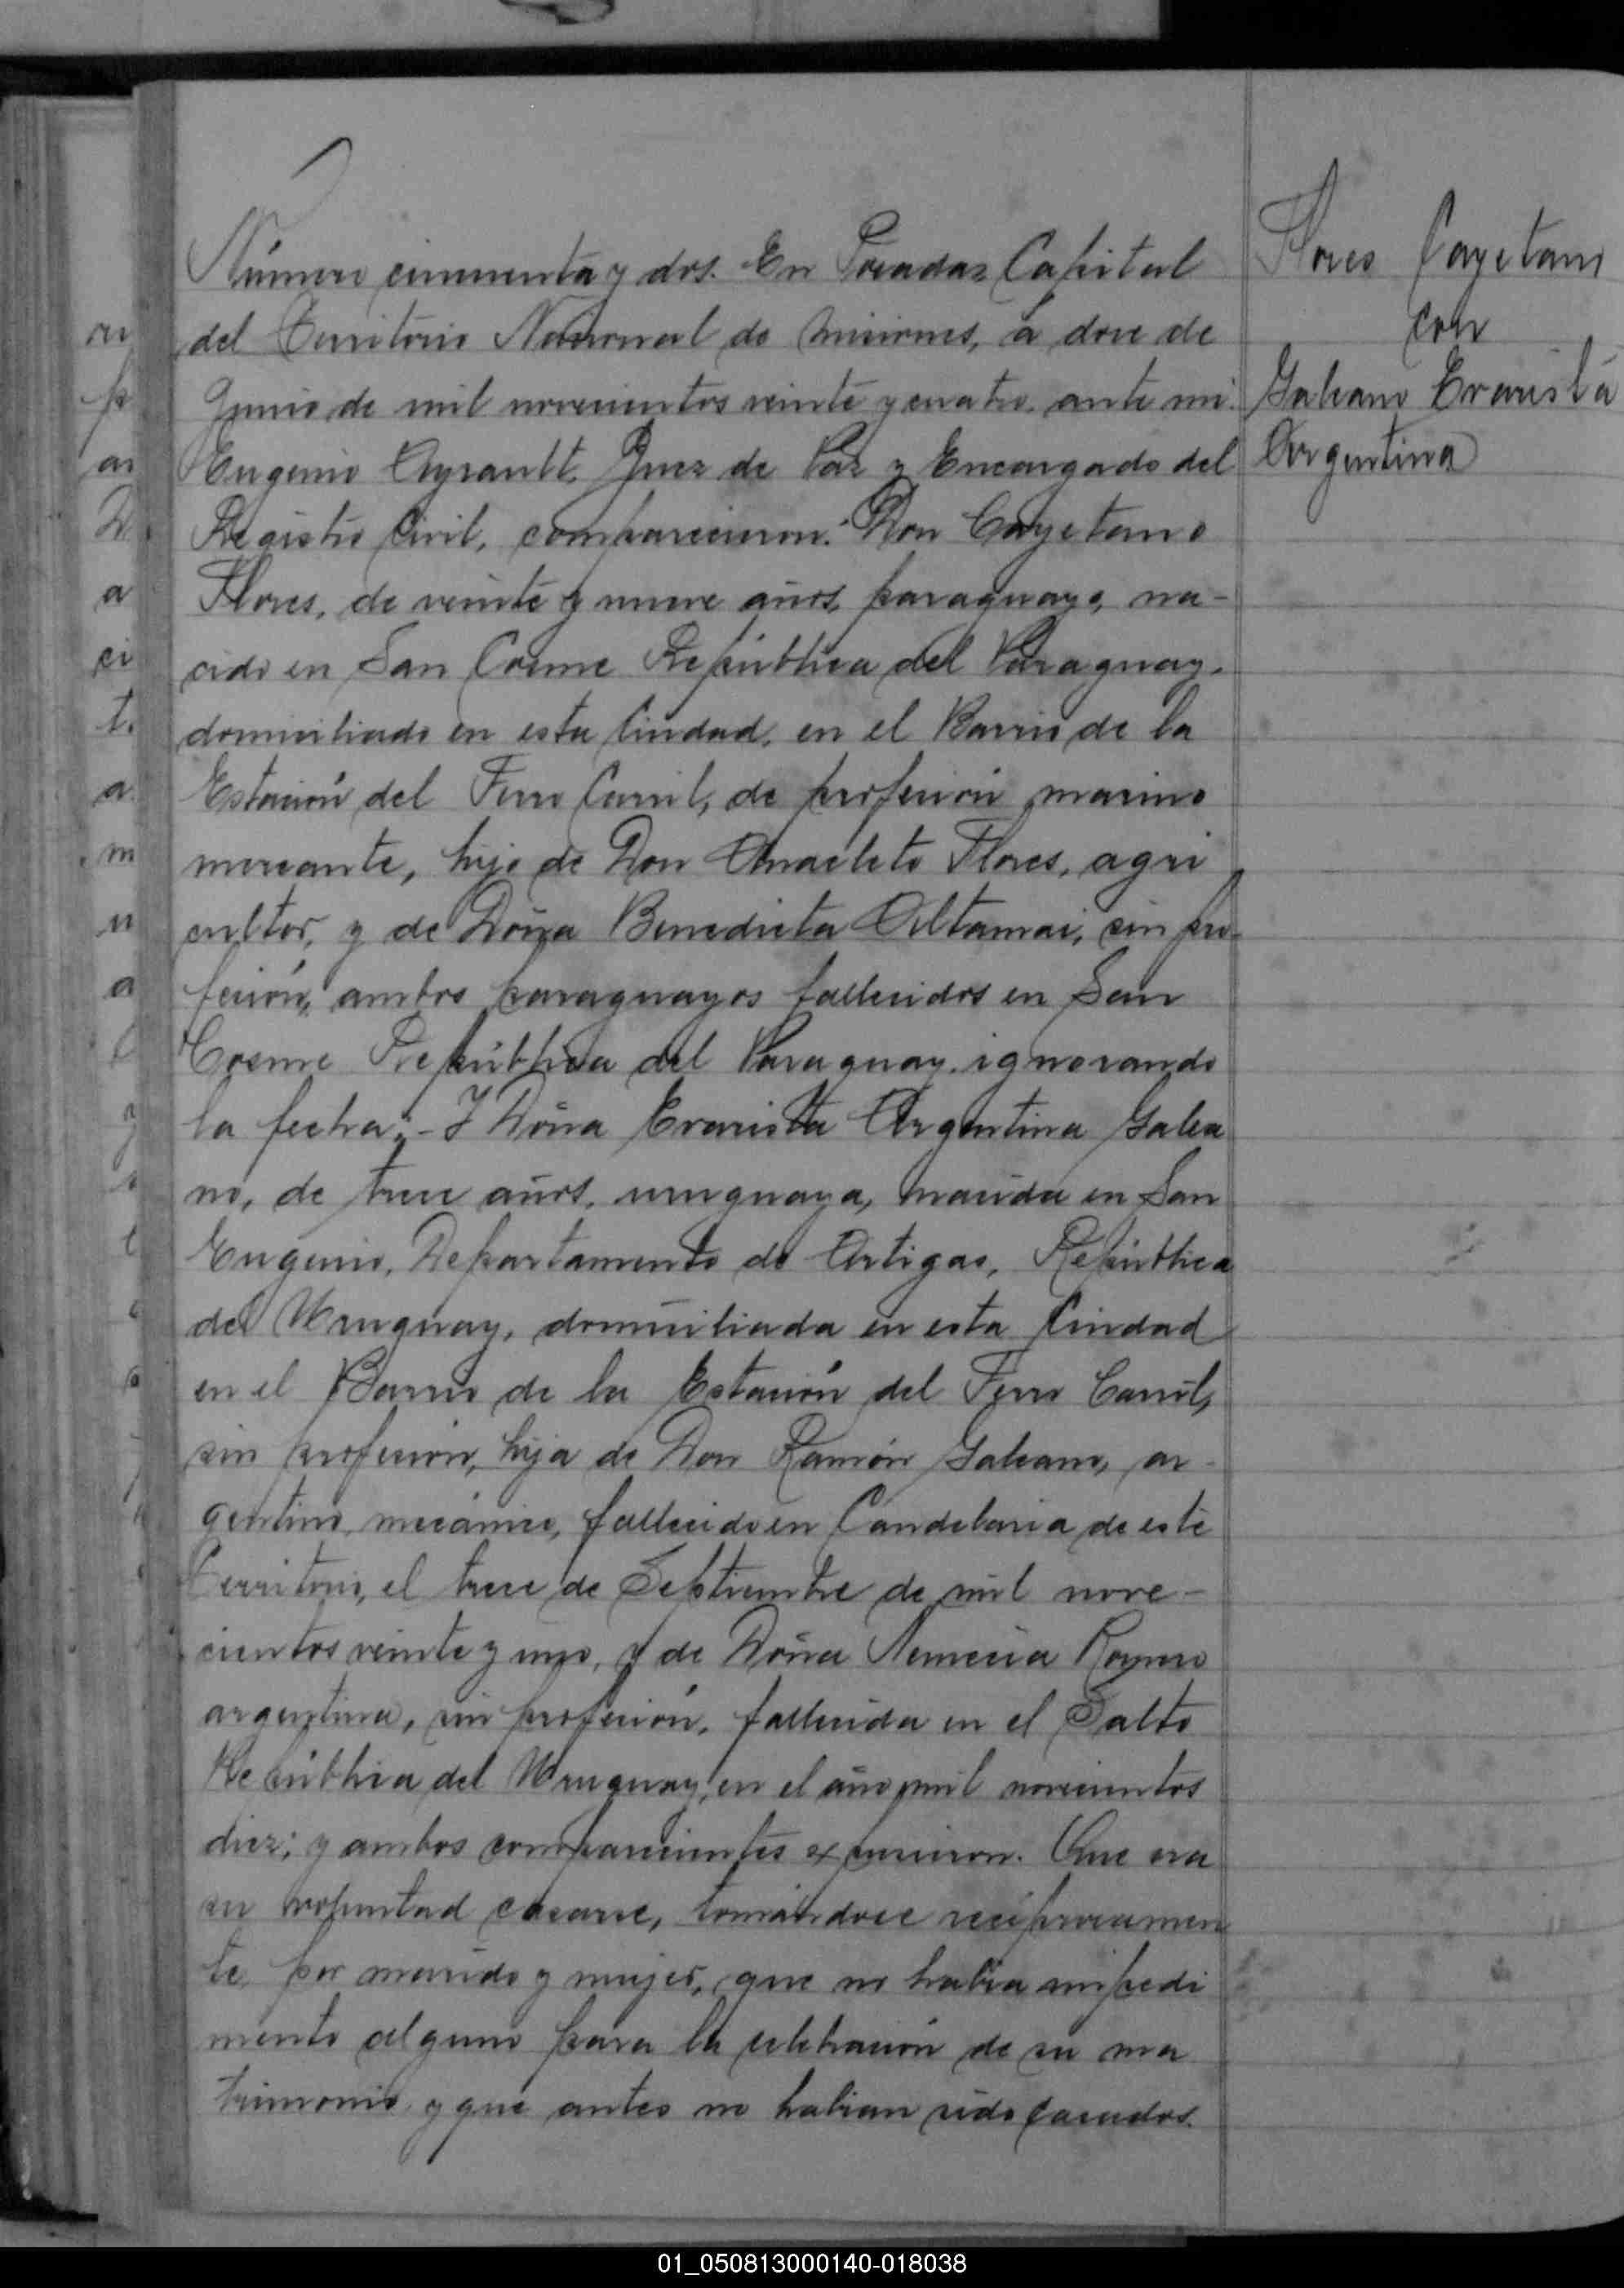 Número cincuenta y dos. En Posadas Capital
del Territorio Nacional de Misiones, a doce de
Junio de mil novecientos veinte y cuatro, ante mi.
Eugenio Ayrault, Juez de Paz y Encargado del
Registro Civil, comparecieron: Don Cayetano
Flores, de veinte y nueve años, paraguayo, na-
cido en San Cosme República del Paraguay,
domiciliado en esta Ciudad, en el Barrio de la
Estación del Ferro Carril, de profesión marino
mercante, hijo de Don Anacleto Flores, agri
cultor, y de Doña Benedicta Altamai, sin pro-
fesión, ambos paraguayos fallecidos en San
Cosme República del Paraguay, ignorando
la fecha; - Y Doña Evarista Argentina Galea
no, de trece años, uruguaya, nacida en San
Eugenio, Departamento de Artigas, República
del Uruguay, domiciliada en esta Ciudad
en el Barrio de la Estación del Ferro Carril,
sin profesión, hija de Don Ramón Galeano, ar-
gentino, mecánico, fallecido en Candelaria de este
Territorio, el trece de Septiembre de mil nove-
cientos veinte y uno, y de Doña Nemecia Romero
argentina, sin profesión, fallecida en el Salto
República del Uruguay, en el año mil novecientos
diez; y ambos comparecientes expusieron: Que era
su voluntad casarse, tomándose recíprocamen
te por marido y mujer, que no habia impedi
mento alguno para la celebración de su ma
trimonio y que antes no habian sido casados.
Flores Cayetano
con
Galeano Evarista
Argentina
01_050813000140-018038